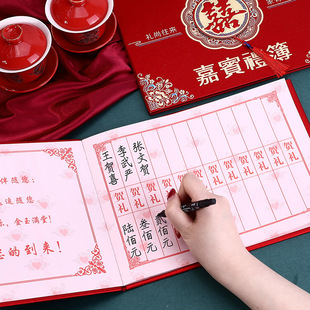 礼尚往来
囍
嘉賓禮簿
伴随您：
随您
，金玉满堂！
您的到来！
王贺喜
李武严
张文贺
贺礼 贺礼 贺礼 贺礼 贺礼 贺礼 贺礼 贺礼 贺礼 贺礼 贺礼
陆佰元
叁佰元
贰佰元